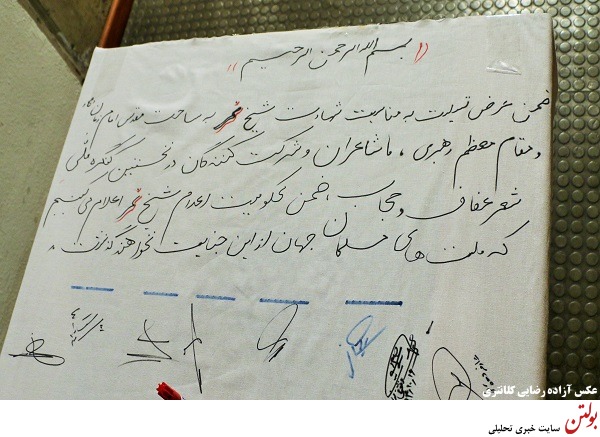 « بسم الله الرحمن الرحیم »
ضمن عرض تسلیت به مناسبت شهادت شیخ نمر به ساحت مقدس امام زمان (عج)
و مقام معظم رهبری ، ما شاعران و شرکت کنندگان در نخستین کنگره ملی
شعر عفاف و حجاب ، ضمن محکومیت اعدام شیخ نمر اعلام می کنیم
که ملت های مسلمان جهان از این جنایت نخواهند گذشت .
عکس آزاده رضایی کلانتری
بولتن سایت خبری تحلیلی